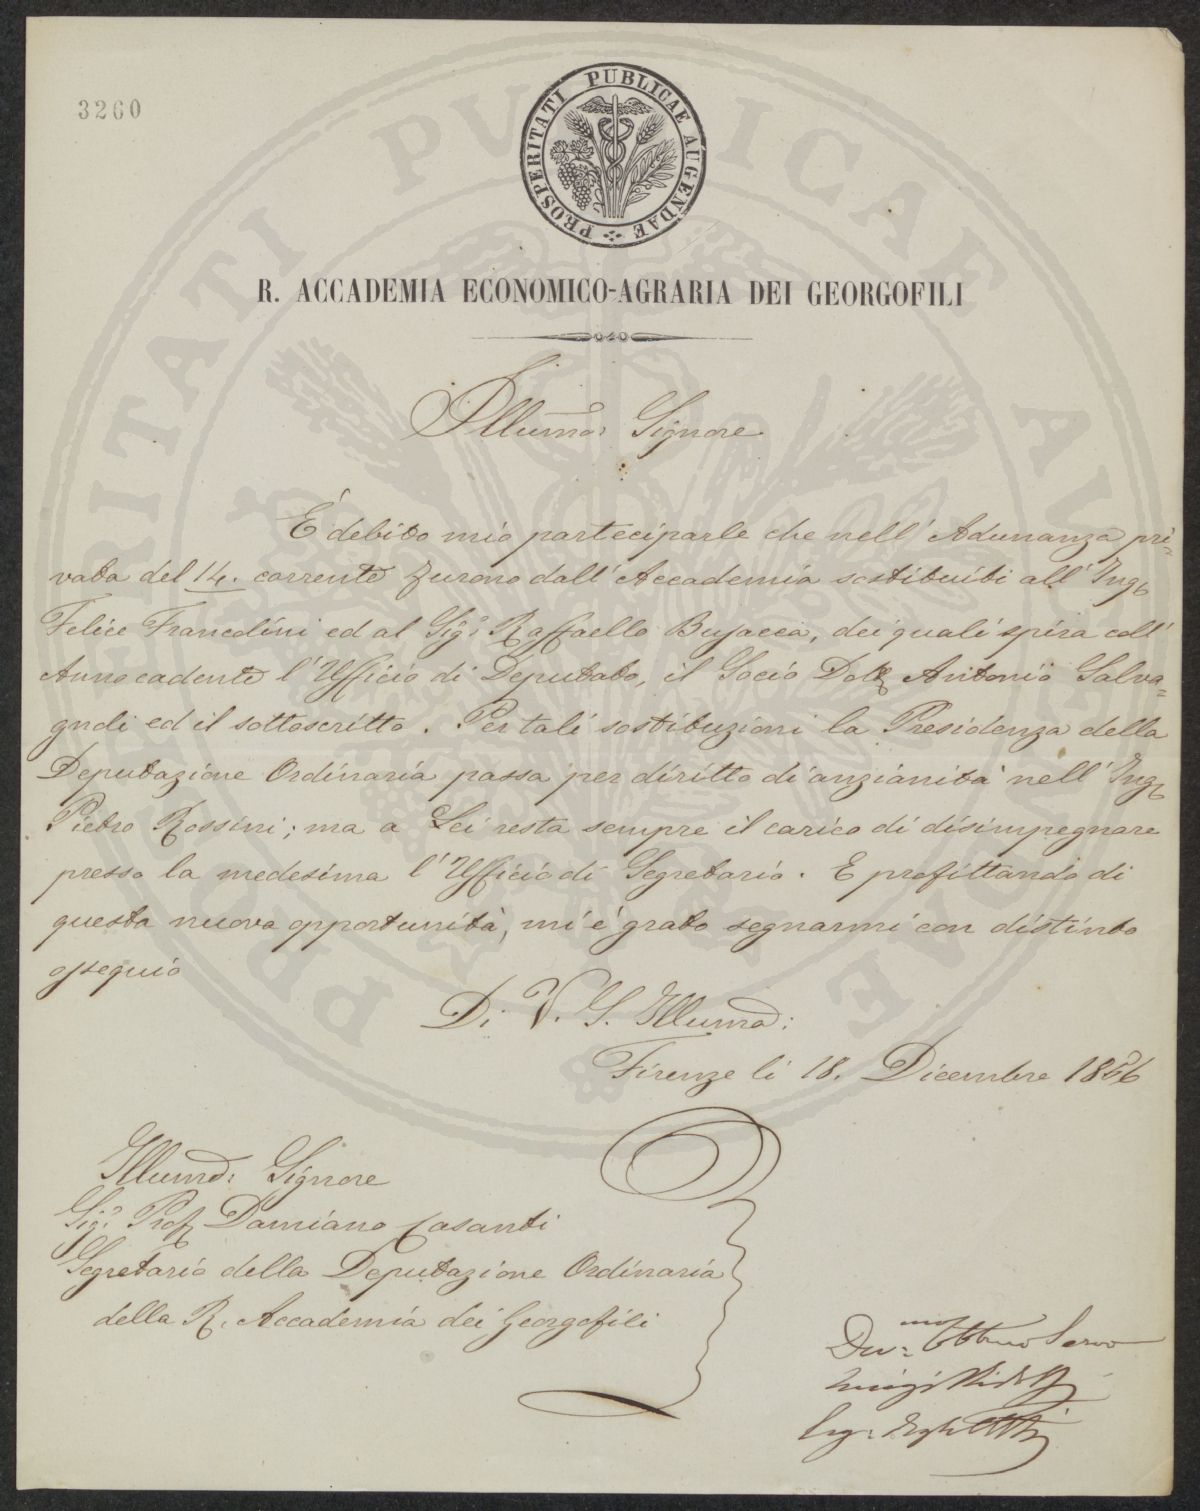 3260
PROSPERITATI PUBLICAE AUGENDAE
R. ACCADEMIA ECONOMICO-AGRARIA DEI GEORGOFILI
Illumo: Signore
È debito mio parteciparle che nell' Adunanza pri=
vata del 14. corrente furono dall' Accademia sostituiti all' Ing
Felice Francolini ed al Sigr. Raffaello Busacca, dei quali spira coll'
Anno cadente l' Ufficio di Deputato, il Socio Dott Antonio Salva=
gnoli ed il sottoscritto. Per tali sostituzioni la Presidenza della
Deputazione Ordinaria passa per diritto di anzianità nell' Ing
Pietro Rossini; ma a Lei resta sempre il carico di disimpegnare
presso la medesima l' Ufficio di Segretario. E profittando di
questa nuova opportunità, mi è grato segnarmi con distinto
ossequio
Di V. S. Illuma:
Firenze li 18. Dicembre 1856
Illumo: Signore
Sigr. Prof Damiano Casanti
Segretario della Deputazione Ordinaria
della R. Accademia dei Georgofili
Dev:mo Obbmo Servo
Luigi Ridolfi
Seg: degli Atti